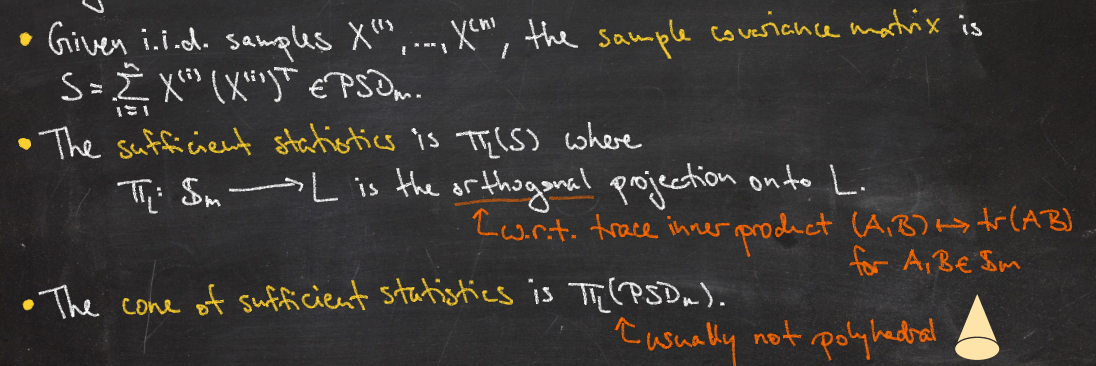 • Given i.i.d. samples X⁽¹⁾, ..., X⁽ⁿ⁾, the sample covariance matrix is
S = ∑ᵢ₌₁ⁿ X⁽ⁱ⁾ (X⁽ⁱ⁾)ᵀ ∈ PSDₘ.
• The sufficient statistics is π_L(S) where
π_L: 𝕊ₘ ⟶ L is the orthogonal projection onto L.
↑ w.r.t. trace inner product (A,B) ↦ tr(AB)
for A,B ∈ 𝕊ₘ
• The cone of sufficient statistics is π_L(PSDₘ).
↑ usually not polyhedral